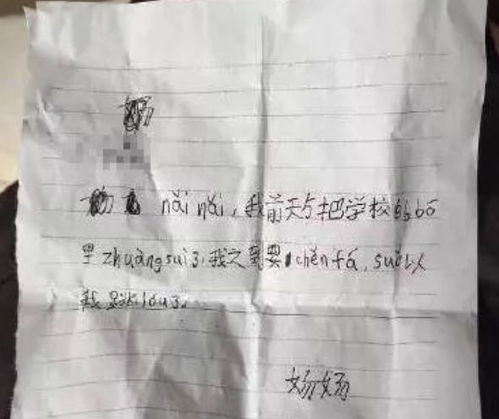 nǎi nǎi,我前天与把学校的bō
里zhuàng suì了,我之需要chěn fá,suǒ以
我跳lóu了,